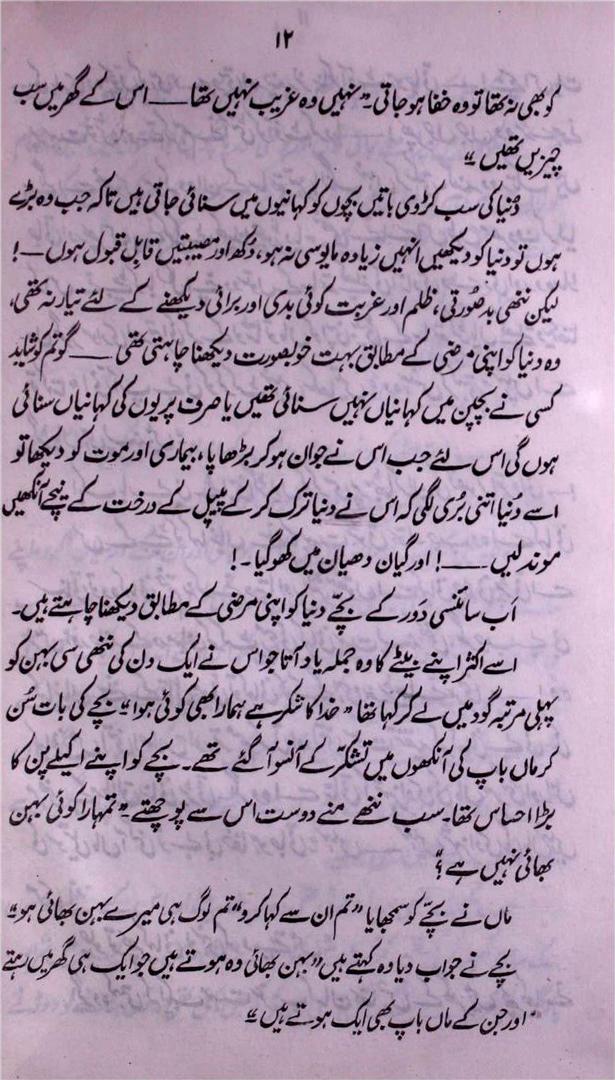 ۱۲
کو بھی نہ تھا تو وہ خفا ہو جاتی۔ "نہیں وہ غریب نہیں تھا —— اس کے گھر میں سب
چیزیں تھیں"
دُنیا کی سب کڑوی باتیں بچوں کو کہانیوں میں سنائی جاتی ہیں تاکہ جب وہ بڑے
ہوں تو دنیا کو دیکھیں انہیں زیادہ مایوسی نہ ہو، دُکھ اور مصیبتیں قابلِ قبول ہوں —!
لیکن ننھی بدصُورتی، ظلم اور غربت کوئی بدی اور برائی دیکھنے کے لئے تیار نہ تھی،
وہ دنیا کو اپنی مرضی کے مطابق بہت خوبصورت دیکھنا چاہتی تھی —— گوتم کو شاید
کسی نے بچپن میں کہانیاں نہیں سنائی تھیں یا صرف پریوں کی کہانیاں سنائی
ہوں گی اس لئے جب اس نے جوان ہو کر بڑھاپا، بیماری اور موت کو دیکھا تو
اسے دُنیا اتنی بُری لگی کہ اس نے دنیا ترک کر کے پیپل کے درخت کے نیچے آنکھیں
موند لیں ——! اور گیان دھیان میں کھو گیا۔!
اَب سائنسی دَور کے بچّے دنیا کو اپنی مرضی کے مطابق دیکھنا چاہتے ہیں۔
اسے اکثر اپنے بیٹے کا وہ جملہ یاد آتا جو اس نے ایک دن کی ننھی سی بہن کو
پہلی مرتبہ گود میں لے کر کہا تھا "خدا کا شکر ہے ہمارا بھی کوئی ہوا" بچے کی بات سُن
کر ماں باپ کی آنکھوں میں تشکّر کے آنسو آ گئے تھے۔ بچے کو اپنے اکیلے پن کا
بڑا احساس تھا۔ سب ننھے منے دوست اس سے پوچھتے۔ "تمہارا کوئی بہن
بھائی نہیں ہے؟"
ماں نے بچّے کو سمجھایا "تم ان سے کہا کرو" تم لوگ ہی میرے بہن بھائی ہو"
بچے نے جواب دیا وہ کہتے ہیں "بہن بھائی وہ ہوتے ہیں جو ایک ہی گھر میں رہتے
اور جن کے ماں باپ بھی ایک ہوتے ہیں"